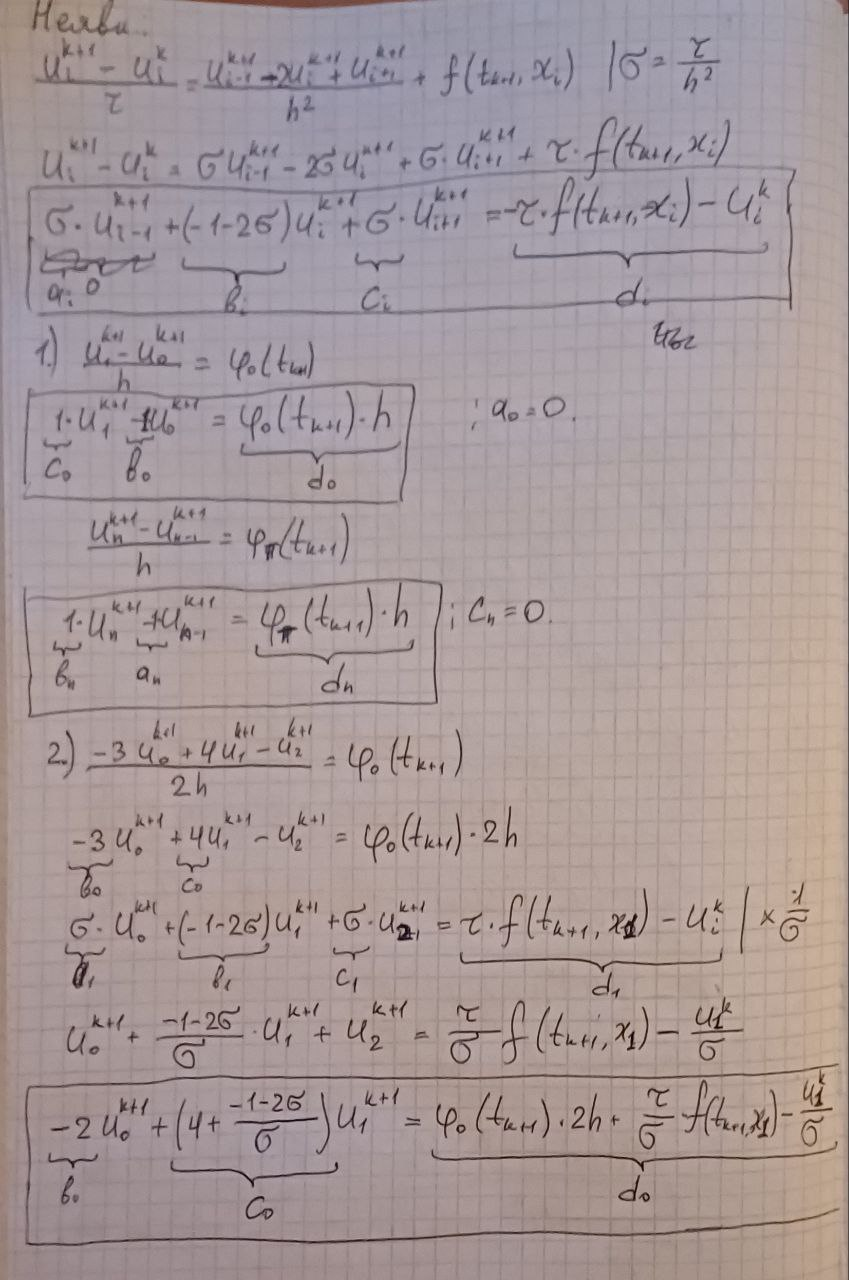 Неявн.
(u_i^{k+1} - u_i^k)/τ = (u_{i-1}^{k+1} - 2u_i^{k+1} + u_{i+1}^{k+1})/h² + f(t_{k+1}, x_i) | σ = τ/h²
u_i^{k+1} - u_i^k = σu_{i-1}^{k+1} - 2σu_i^{k+1} + σ·u_{i+1}^{k+1} + τ·f(t_{k+1}, x_i)
σ·u_{i-1}^{k+1} + (-1-2σ)u_i^{k+1} + σ·u_{i+1}^{k+1} = -τ·f(t_{k+1}, x_i) - u_i^k
a_i 0 b_i c_i d_i
1.) (u_1^{k+1} - u_0^{k+1})/h = φ_0(t_{k+1})
1·u_1^{k+1} -1u_0^{k+1} = φ_0(t_{k+1})·h ; a_0 = 0.
c_0 b_0 d_0
(u_n^{k+1} - u_{n-1}^{k+1})/h = φ_π(t_{k+1})
1·u_n^{k+1} -1u_{n-1}^{k+1} = φ_π(t_{k+1})·h ; c_n = 0.
b_n a_n d_n
2.) (-3u_0^{k+1} + 4u_1^{k+1} - u_2^{k+1})/2h = φ_0(t_{k+1})
-3u_0^{k+1} + 4u_1^{k+1} - u_2^{k+1} = φ_0(t_{k+1})·2h
b_0 c_0
σ·u_0^{k+1} + (-1-2σ)u_1^{k+1} + σ·u_2^{k+1} = τ·f(t_{k+1}, x_1) - u_i^k | × 1/σ
a_1 b_1 c_1 d_1
u_0^{k+1} + (-1-2σ)/σ · u_1^{k+1} + u_2^{k+1} = τ/σ f(t_{k+1}, x_1) - u_1^k/σ
-2u_0^{k+1} + (4 + (-1-2σ)/σ)u_1^{k+1} = φ_0(t_{k+1})·2h + τ/σ f(t_{k+1}, x_1) - u_1^k/σ
b_0 c_0 d_0